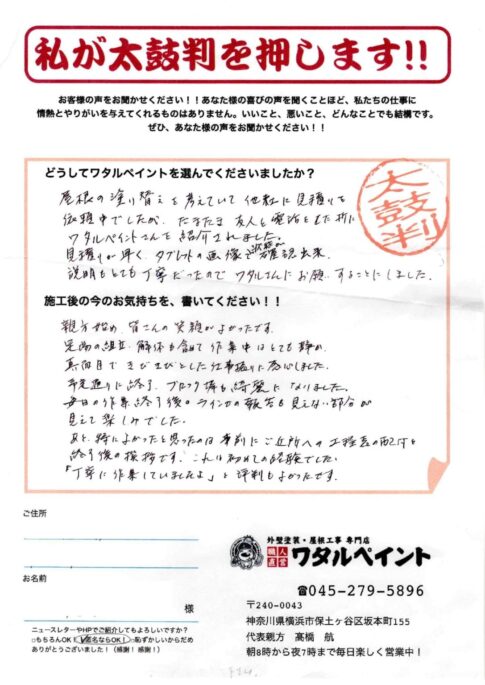 私が太鼓判を押します!!
お客様の声をお聞かせください！！あなた様の喜びの声を聞くことほど、私たちの仕事に
情熱とやりがいを与えてくれるものはありません。いいこと、悪いこと、どんなことでも結構です。
ぜひ、あなた様の声をお聞かせください！！
どうしてワタルペイントを選んでくださいましたか？
太鼓判
屋根の塗り替えを考えていて他社に見積りを
依頼中でしたが、たまたま友人と電話をした折に
ワタルペイントさんを紹介されました。
見積りが早く、タブレットの画像で状態が確認出来、
説明もとても丁寧だったのでワタルさんにお願いすることにしました。
施工後の今のお気持ちを、書いてください！！
親方始め、皆さんの笑顔がよかったです。
足場の組立、解体も含めて作業中はとても静か、
真面目できびきびとした仕事振りに感心しました。
予定通りに終了、ブロック塀も綺麗になりました。
毎日の作業終了後のラインでの報告も見えない部分が
見えて楽しみでした。
あと、特によかったと思ったのは事前にご近所への工程表の配付と
終了後の挨拶です。これは初めての経験でした。
「丁寧に作業していましたよ」と評判もよかったです。
ご住所
お名前
様
ニュースレターやHPでご紹介してもよろしいですか？
□もちろんOK！ 匿名ならOK！ 恥ずかしいからだめ
ありがとうございました！（感謝！感謝！）
外壁塗装・屋根工事 専門店
職人直営 ワタルペイント
☎045-279-5896
〒240-0043
神奈川県横浜市保土ヶ谷区坂本町155
代表親方 髙橋 航
朝8時から夜7時まで毎日楽しく営業中！